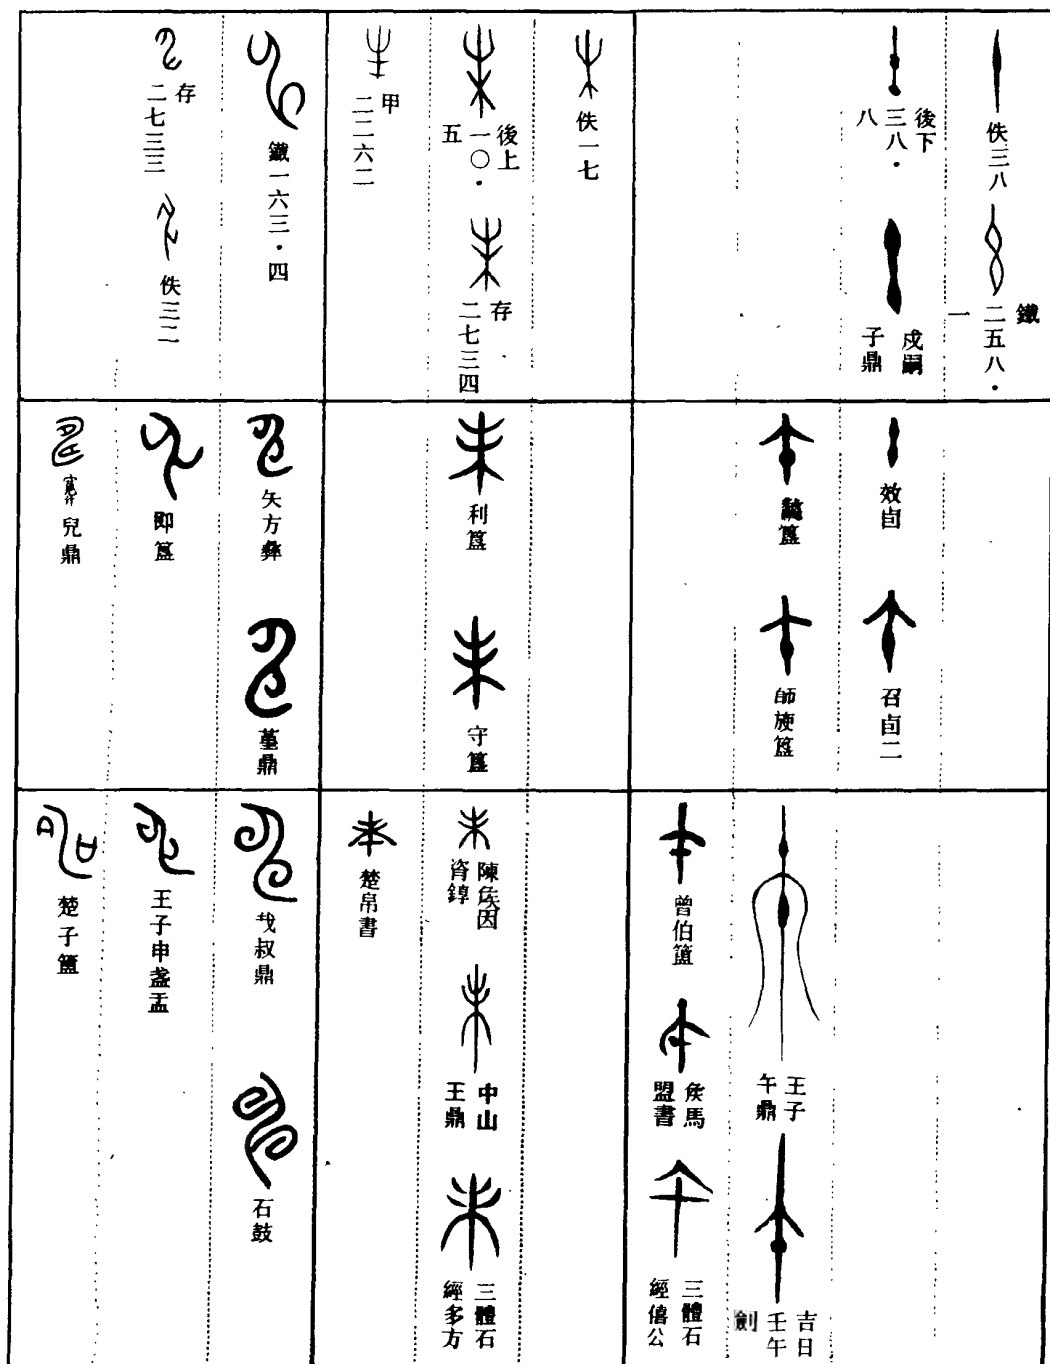 佚三八
鐵二五八·一
後下三八·八
戍嗣子鼎
佚一七
後上一〇·五
存二七三四
甲二二六二
鐵一六三·四
存二七三三
佚三二
效卣
召卣二
簋
師旋簋
利簋
守簋
矢方彝
堇鼎
即簋
兒鼎
王子午鼎
吉日壬午劍
曾伯簠
矦馬盟書
三體石經僖公
陳矦因𬣙錞
中山王鼎
三體石經多方
楚帛書
弋叔鼎
石鼓
王子申盞盂
楚子簠